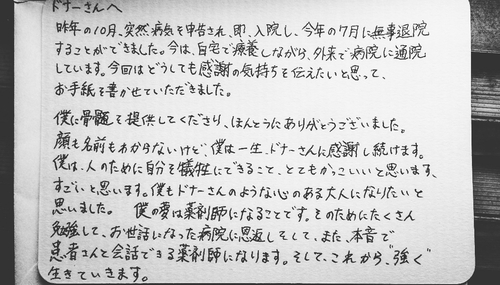 ドナーさんへ
昨年の10月、突然病気を申告され、即、入院し、今年の7月に無事退院
することができました。今は、自宅で療養しながら、外来で病院に通院
しています。今回はどうしても感謝の気持ちを伝えたいと思って、
お手紙を書かせていただきました。
僕に骨髄を提供してくださり、ほんとうにありがとうございました。
顔も名前もわからないけど、僕は一生、ドナーさんに感謝し続けます。
僕は、人のために自分を犠牲にできること、とてもかっこいいと思います、
すごいと思います。僕もドナーさんのような心のある大人になりたいと
思いました。 僕の夢は薬剤師になることです。そのためにたくさん
勉強して、お世話になった病院に恩返しをして、また、本音で
患者さんと会話できる薬剤師になります。そして、これから、"強く"
生きていきます。